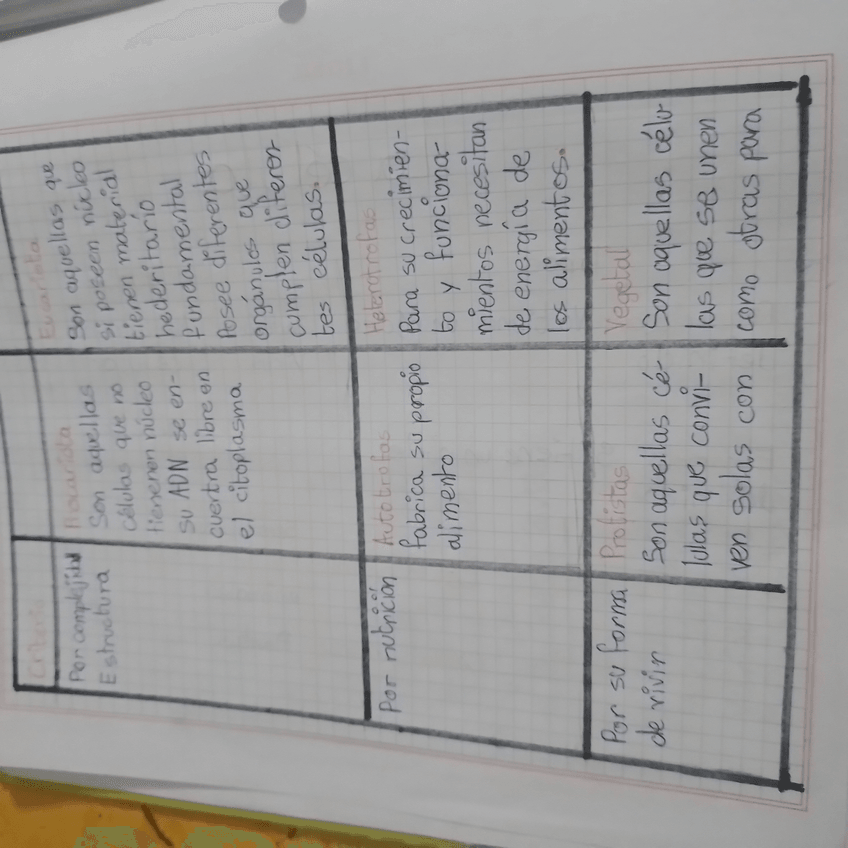 Criterio
Procariota
Eucariota
Por complejidad
Estructura
Son aquellas
células que no
tienenen núcleo
su ADN se en-
cuentra libre en
el citoplasma
Son aquellas que
si poseen núcleo
tienen material
hederitario
fundamental
Posee diferentes
orgánulos que
cumplen diferen
tes células.
Por nutrición
Autotrofas
fabrica su propio
alimento
Heterotrofas
Para su crecimien-
to y funciona-
mientos necesitan
de energía de
los alimentos.
Por su forma
de vivir
Protistas
Son aquellas cé-
lulas que convi-
ven solas con
Vegetal
Son aquellas célu
las que se unen
como otras para